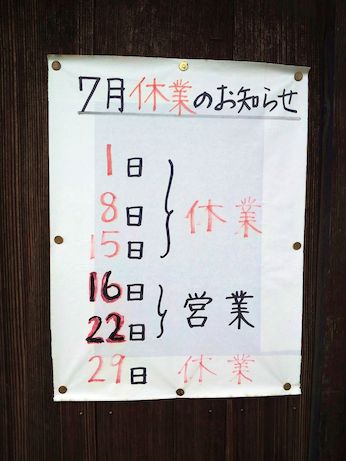 7月休業のお知らせ
1日
8日
15日
休業
16日
22日
営業
29日 休業